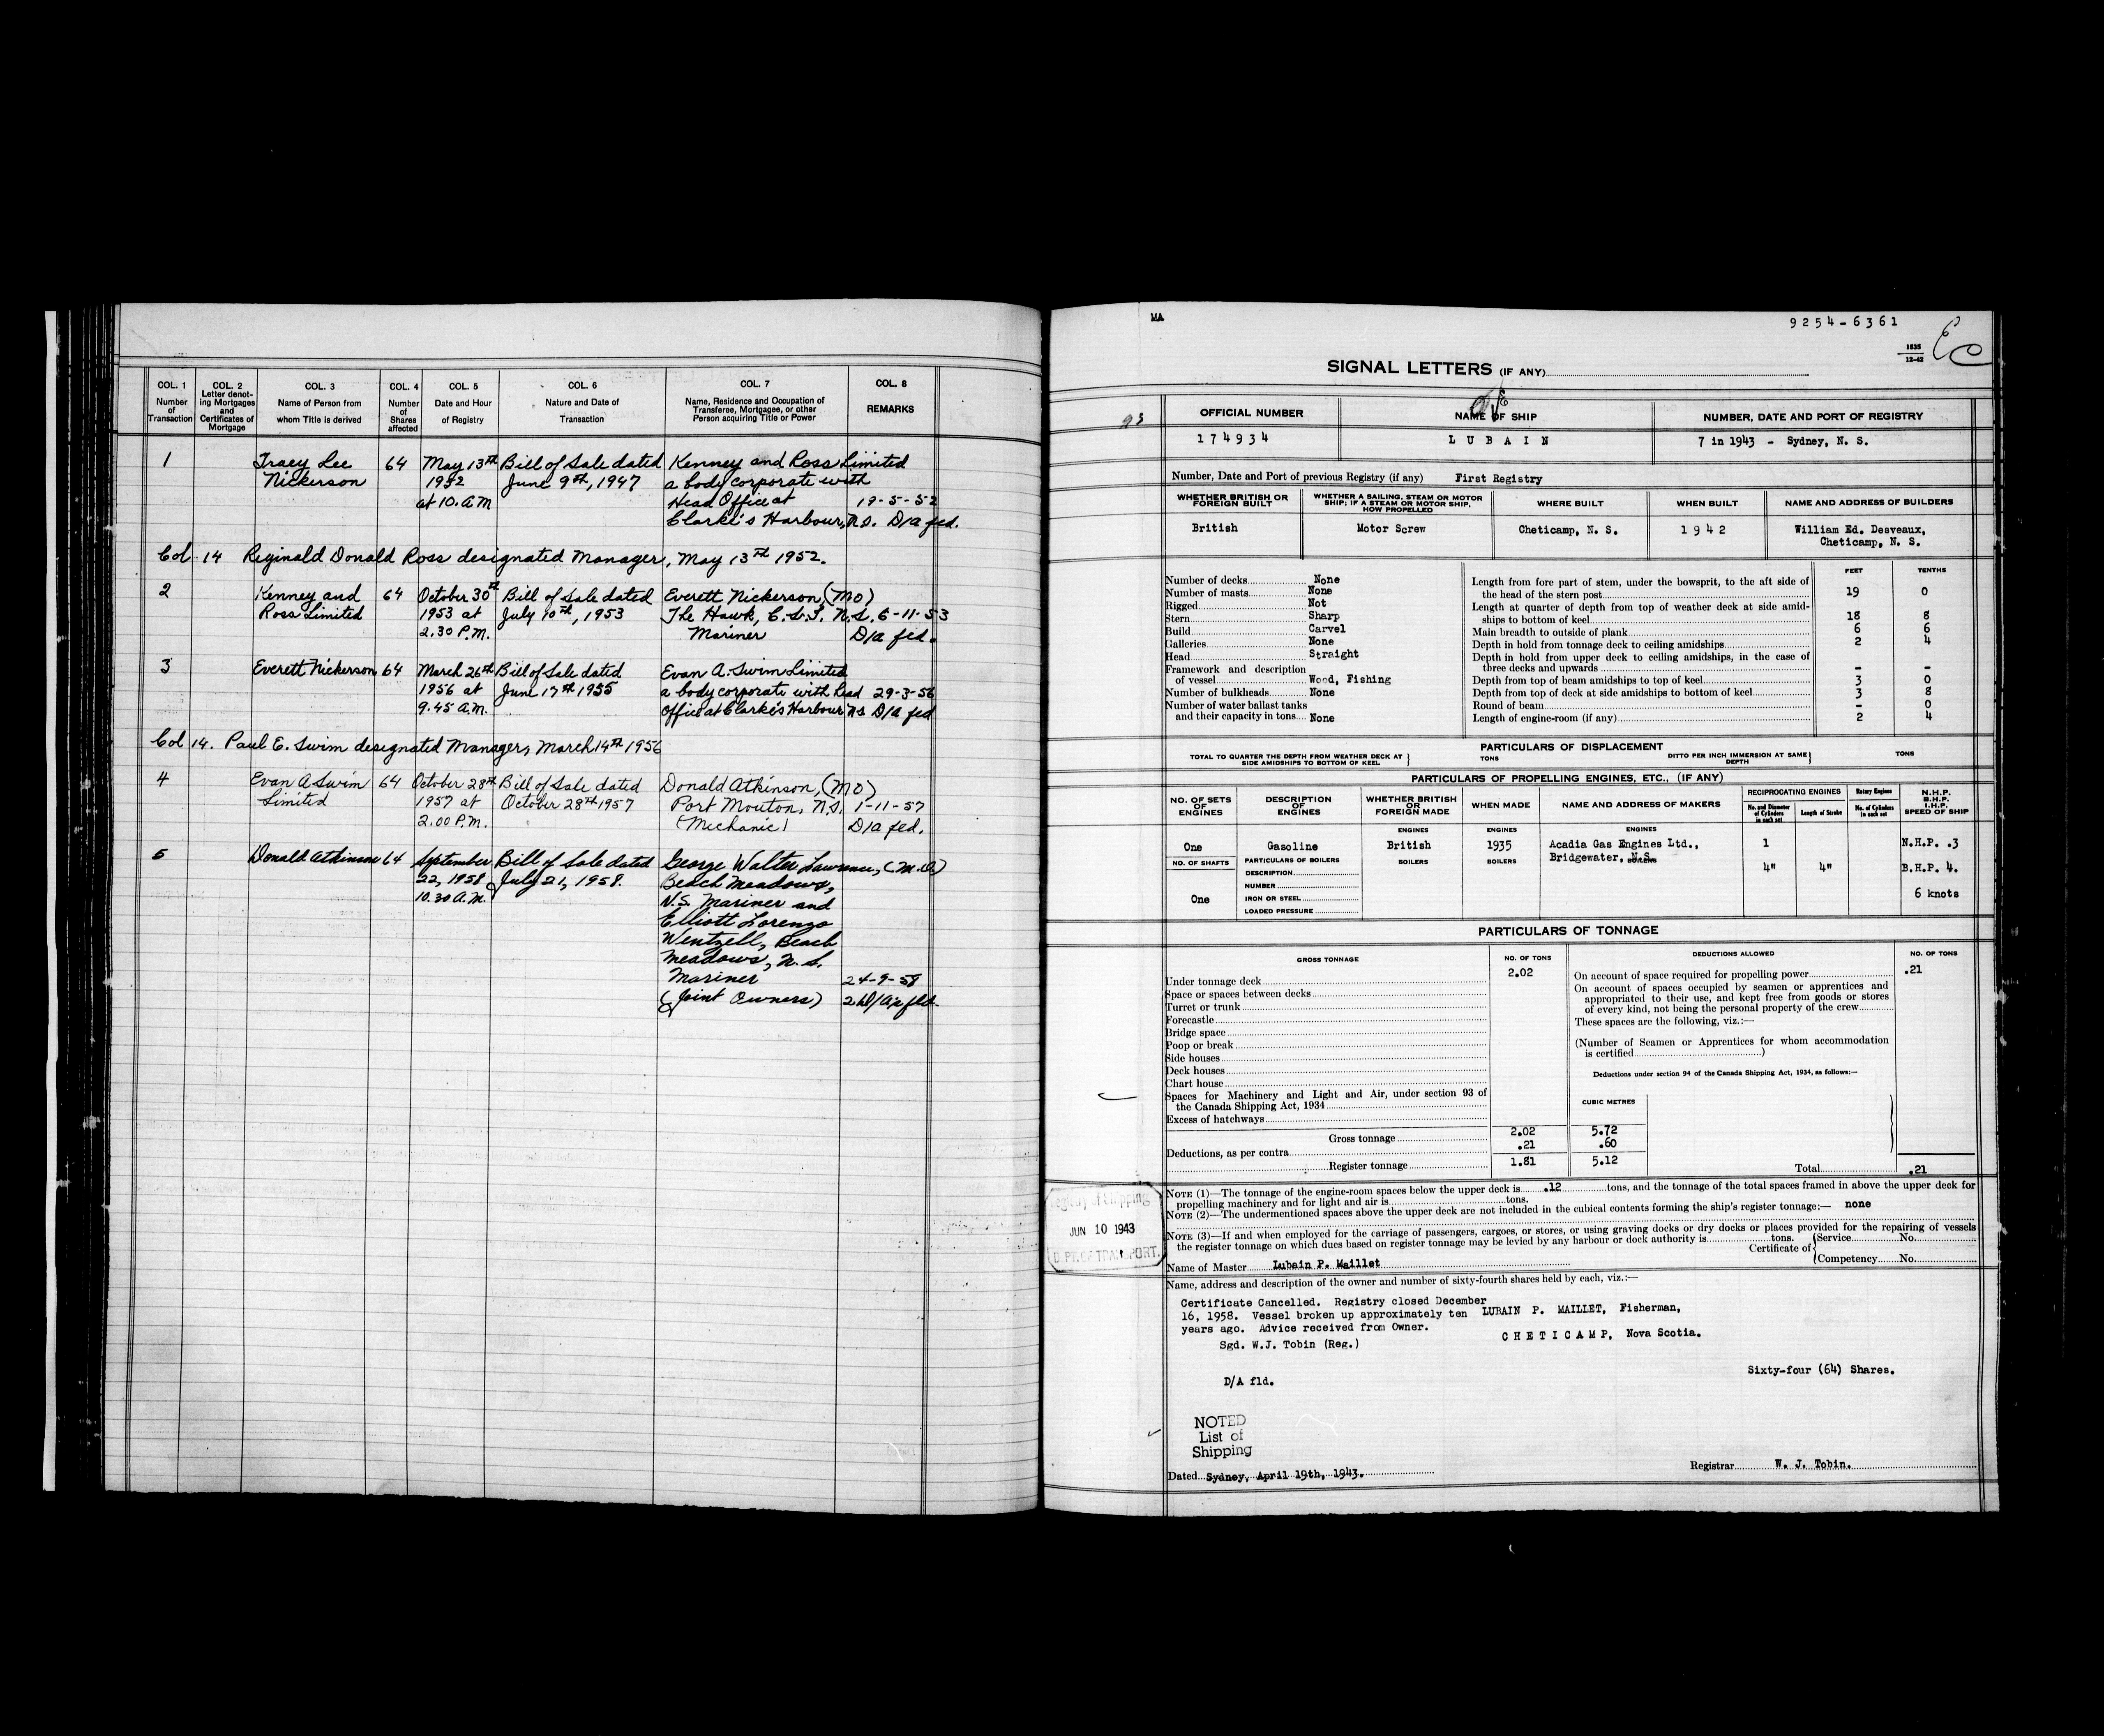 COL. 1 COL. 2 COL. 3 COL. 4 COL. 5 COL. 6 COL. 7 COL. 8
Number of Transaction
Letter denoting Mortgages and Certificates of Mortgage
Name of Person from whom Title is derived
Number of Shares affected
Date and Hour of Registry
Nature and Date of Transaction
Name, Residence and Occupation of Transferee, Mortgagee, or other Person acquiring Title or Power
REMARKS
1 Tracy Lee 64 May 13th Bill of Sale dated Kenney and Ross Limited
Nickerson 1952 June 9th, 1947 a body corporate with
at 10. A.M Head Office at 19-5-52
Clarke's Harbour, N.S. D/a fed.
Col 14 Reginald Donald Ross designated Manager, May 13th 1952.
2 Kenney and 64 October 30th Bill of Sale dated Everett Nickerson, (MO)
Ross Limited 1953 at July 10th, 1953 The Hawk, C.S.I. N.S. 6-11-53
2.30 P.M. Mariner D/a fed.
3 Everett Nickerson 64 March 26th Bill of Sale dated Evan A. Swim Limited
1956 at June 17th 1955 a body corporate with head 29-3-56
9.45 A.M. office at Clarke's Harbour N.S D/a fed
Col 14. Paul E. Swim designated Manager, March 14th 1956
4 Evan A Swim 64 October 28th Bill of Sale dated Donald Atkinson, (MO)
Limited 1957 at October 28th 1957 Port Mouton, N.S. 1-11-57
2.00 P.M. (Mechanic) D/a fed.
5 Donald Atkinson 64 September Bill of Sale dated George Walter Lawrence, (M.O.)
22, 1958 July 21, 1958. Beach Meadows,
10.30 A.M. N.S. Mariner and
Elliott Lorenzo
Wentzell, Beach
Meadows, N.S.
Mariner 24-9-58
(Joint Owners) 2 D/A's fld.
MA
9254-6361
1535
12-42
SIGNAL LETTERS (IF ANY)
93
OFFICIAL NUMBER NAME OF SHIP NUMBER, DATE AND PORT OF REGISTRY
174934 LUBAIN 7 in 1943 - Sydney, N. S.
Number, Date and Port of previous Registry (if any) First Registry
WHETHER BRITISH OR FOREIGN BUILT
WHETHER A SAILING, STEAM OR MOTOR SHIP; IF A STEAM OR MOTOR SHIP, HOW PROPELLED
WHERE BUILT WHEN BUILT NAME AND ADDRESS OF BUILDERS
British Motor Screw Cheticamp, N. S. 1942 William Ed. Desveaux,
Cheticamp, N. S.
FEET TENTHS
Number of decks None
Number of masts None
Rigged Not
Stern Sharp
Build Carvel
Galleries None
Head Straight
Framework and description
of vessel Wood, Fishing
Number of bulkheads None
Number of water ballast tanks
and their capacity in tons None
Length from fore part of stem, under the bowsprit, to the aft side of
the head of the stern post 19 0
Length at quarter of depth from top of weather deck at side amid-
ships to bottom of keel 18 8
Main breadth to outside of plank 6 6
Depth in hold from tonnage deck to ceiling amidships 2 4
Depth in hold from upper deck to ceiling amidships, in the case of
three decks and upwards - -
Depth from top of beam amidships to top of keel 3 0
Depth from top of deck at side amidships to bottom of keel 3 8
Round of beam - 0
Length of engine-room (if any) 2 4
PARTICULARS OF DISPLACEMENT
TOTAL TO QUARTER THE DEPTH FROM WEATHER DECK AT SIDE AMIDSHIPS TO BOTTOM OF KEEL TONS DITTO PER INCH IMMERSION AT SAME DEPTH TONS
PARTICULARS OF PROPELLING ENGINES, ETC., (IF ANY)
NO. OF SETS OF ENGINES
DESCRIPTION OF ENGINES
WHETHER BRITISH OR FOREIGN MADE
WHEN MADE
NAME AND ADDRESS OF MAKERS
RECIPROCATING ENGINES
No. and Diameter of Cylinders in each set
Length of Stroke
Rotary Engines
No. of Cylinders in each set
N.H.P.
B.H.P.
I.H.P.
SPEED OF SHIP
ENGINES ENGINES ENGINES
One Gasoline British 1935 Acadia Gas Engines Ltd., 1 N.H.P. .3
Bridgewater, N.S.
NO. OF SHAFTS PARTICULARS OF BOILERS BOILERS BOILERS BOILERS
DESCRIPTION 4" 4" B.H.P. 4.
NUMBER
One IRON OR STEEL 6 knots
LOADED PRESSURE
PARTICULARS OF TONNAGE
GROSS TONNAGE NO. OF TONS DEDUCTIONS ALLOWED NO. OF TONS
Under tonnage deck 2.02
Space or spaces between decks
Turret or trunk
Forecastle
Bridge space
Poop or break
Side houses
Deck houses
Chart house
Spaces for Machinery and Light and Air, under section 93 of
the Canada Shipping Act, 1934
Excess of hatchways
Gross tonnage 2.02 5.72
Deductions, as per contra .21 .60
Register tonnage 1.81 5.12
On account of space required for propelling power .21
On account of spaces occupied by seamen or apprentices and
appropriated to their use, and kept free from goods or stores
of every kind, not being the personal property of the crew
These spaces are the following, viz.:—
(Number of Seamen or Apprentices for whom accommodation
is certified )
Deductions under section 94 of the Canada Shipping Act, 1934, as follows:—
CUBIC METRES
Total .21
NOTE (1)—The tonnage of the engine-room spaces below the upper deck is .12 tons, and the tonnage of the total spaces framed in above the upper deck for
propelling machinery and for light and air is tons.
NOTE (2)—The undermentioned spaces above the upper deck are not included in the cubical contents forming the ship's register tonnage:— none
NOTE (3)—If and when employed for the carriage of passengers, cargoes, or stores, or using graving docks or dry docks or places provided for the repairing of vessels
the register tonnage on which dues based on register tonnage may be levied by any harbour or dock authority is tons.
Certificate of Service No.
Competency No.
Name of Master Lubain P. Maillet
Registry of Shipping
JUN 10 1943
DEPT. OF TRANSPORT.
Name, address and description of the owner and number of sixty-fourth shares held by each, viz.:—
Certificate Cancelled. Registry closed December
16, 1958. Vessel broken up approximately ten
years ago. Advice received from Owner.
Sgd. W.J. Tobin (Reg.)
D/A fld.
LUBAIN P. MAILLET, Fisherman,
CHETICAMP, Nova Scotia.
Sixty-four (64) Shares.
NOTED
List of
Shipping
Dated Sydney, April 19th, 1943.
Registrar W. J. Tobin.